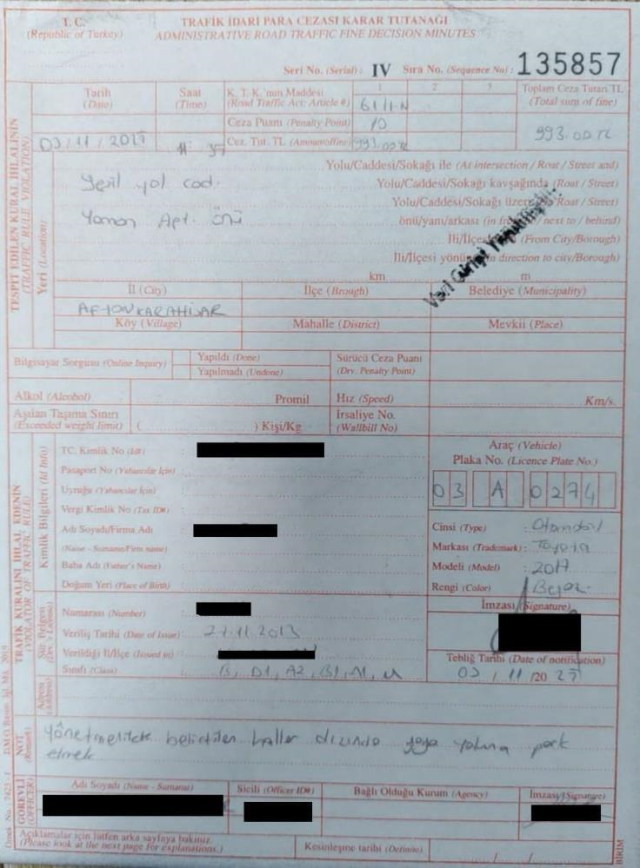 T. C.
(Republic of Turkey)
TRAFİK İDARİ PARA CEZASI KARAR TUTANAĞI
ADMINISTRATIVE ROAD TRAFFIC FINE DECISION MINUTES
Seri No. (Serial): IV Sıra No. (Sequence No): 135857
Tarih
(Date)
Saat
(Time)
K. T. K.'nun Maddesi
(Road Traffic Act: Article #)
1 2 3
61/1-N
Toplam Ceza Tutarı TL
(Total sum of fine)
Ceza Puanı (Penalty Point)
10
03/11/20
Cez. Tut. TL
993.00 TL
993.00 TL
TESPİT EDİLEN KURAL İHLALİNİN
(TRAFFIC RULE VIOLATION)
Yeri (Location)
Yeşil yol cad.
Yaman Apt. önü
Yolu/Caddesi/Sokağı ile (At intersection / Roat / Street and)
Yolu/Caddesi/Sokağı kavşağında (Roat / Street)
Yolu/Caddesi/Sokağı
(Roat / Street)
önü/yanı/arkası
next to / behind)
(From City/Borough)
İli/İlçesi
direction to city/Borough)
Veri Girişi Yapılmıştır.
km m
İl (City) İlçe (Brough) Belediye (Municipality)
AFYONKARAHİSAR
Köy (Village) Mahalle (District) Mevkii (Place)
Bilgisayar Sorgusu (Online Inquiry)
Yapıldı (Done)
Yapılmadı (Undone)
Sürücü Ceza Puanı
(Drv. Penalty Point)
Alkol (Alcohol) Promil Hız (Speed) Km/s.
Aşılan Taşıma Sınırı
(Exceeded weight limit) ( ) Kişi/Kg
İrsaliye No.
(Wallbill No)
TRAFİK KURALINI İHLAL EDENİN
(VIOLATOR OF TRAFFIC RULE)
Kimlik Bilgileri (Id Info)
TC. Kimlik No (Id#)
Pasaport No (Yabancılar İçin)
Uyruğu (Yabancılar İçin)
Vergi Kimlik No (Tax ID#)
Adı Soyadı/Firma Adı
(Name - Surname/Firm name)
Baba Adı (Father's Name)
Doğum Yeri (Place of Birth)
Araç (Vehicle)
Plaka No. (Licence Plate No.)
03 A 0274
Cinsi (Type) : Otomobil
Markası (Trademark) : Toyota
Modeli (Model) : 2017
Rengi (Color) : Beyaz
Sür. Belgesi
Numarası (Number)
Veriliş Tarihi (Date of Issue) 27.11.2013
Verildiği İl/İlçe (Issued in)
Sınıfı (Class) B, D1, A2, B1, M,
İmzası (Signature)
Tebliğ Tarihi (Date of notification)
03 / 11 /20
Adresi
(Address)
NOT
(Remark)
Yönetmelikte belirtilen haller dışında yaya yoluna park
etmek
GÖREVLİ
(OFFICER)
Adı Soyadı (Name - Surname) Sicili (Officer ID#) Bağlı Olduğu Kurum (Agency) İmzası (Signature)
Açıklamalar için lütfen arka sayfaya bakınız.
(Please look at the next page for explanations.)
Kesinleşme tarihi (Definite)